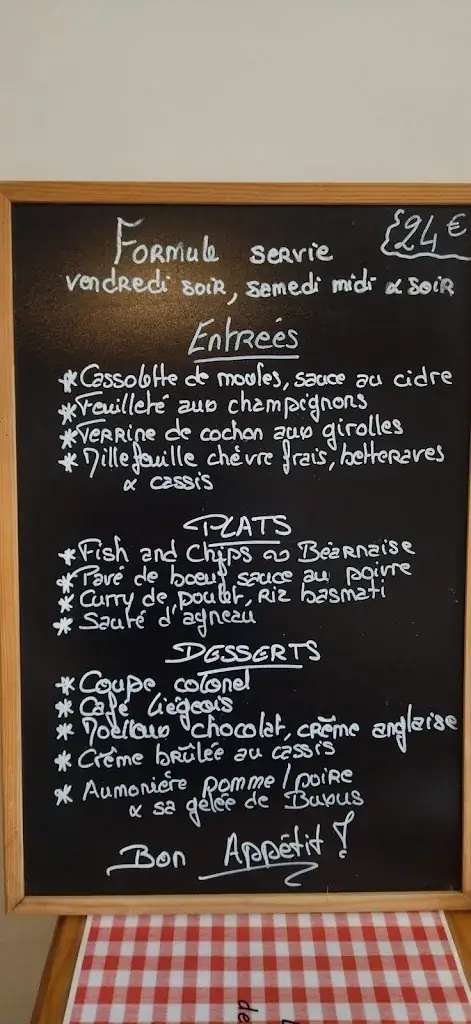 FORMULE SERVIE {24 €
VENDREDI SOIR, SAMEDI MIDI & SOIR
Entrées
* Cassolette de moules, sauce au cidre
* Feuilleté aux champignons
* Terrine de cochon aux girolles
* Millefeuille chèvre frais, betteraves
& cassis
PLATS
* Fish and Chips ~ Béarnaise
* Pavé de boeuf, sauce au poivre
* Curry de poulet, Riz basmati
* Sauté d'agneau
DESSERTS
* Coupe colonel
* Café liégeois
* Moelleux chocolat, crème anglaise
* Crème brûlée au cassis
* Aumonière pomme / poire
& sa gelée de Bubus
Bon Appétit !
de